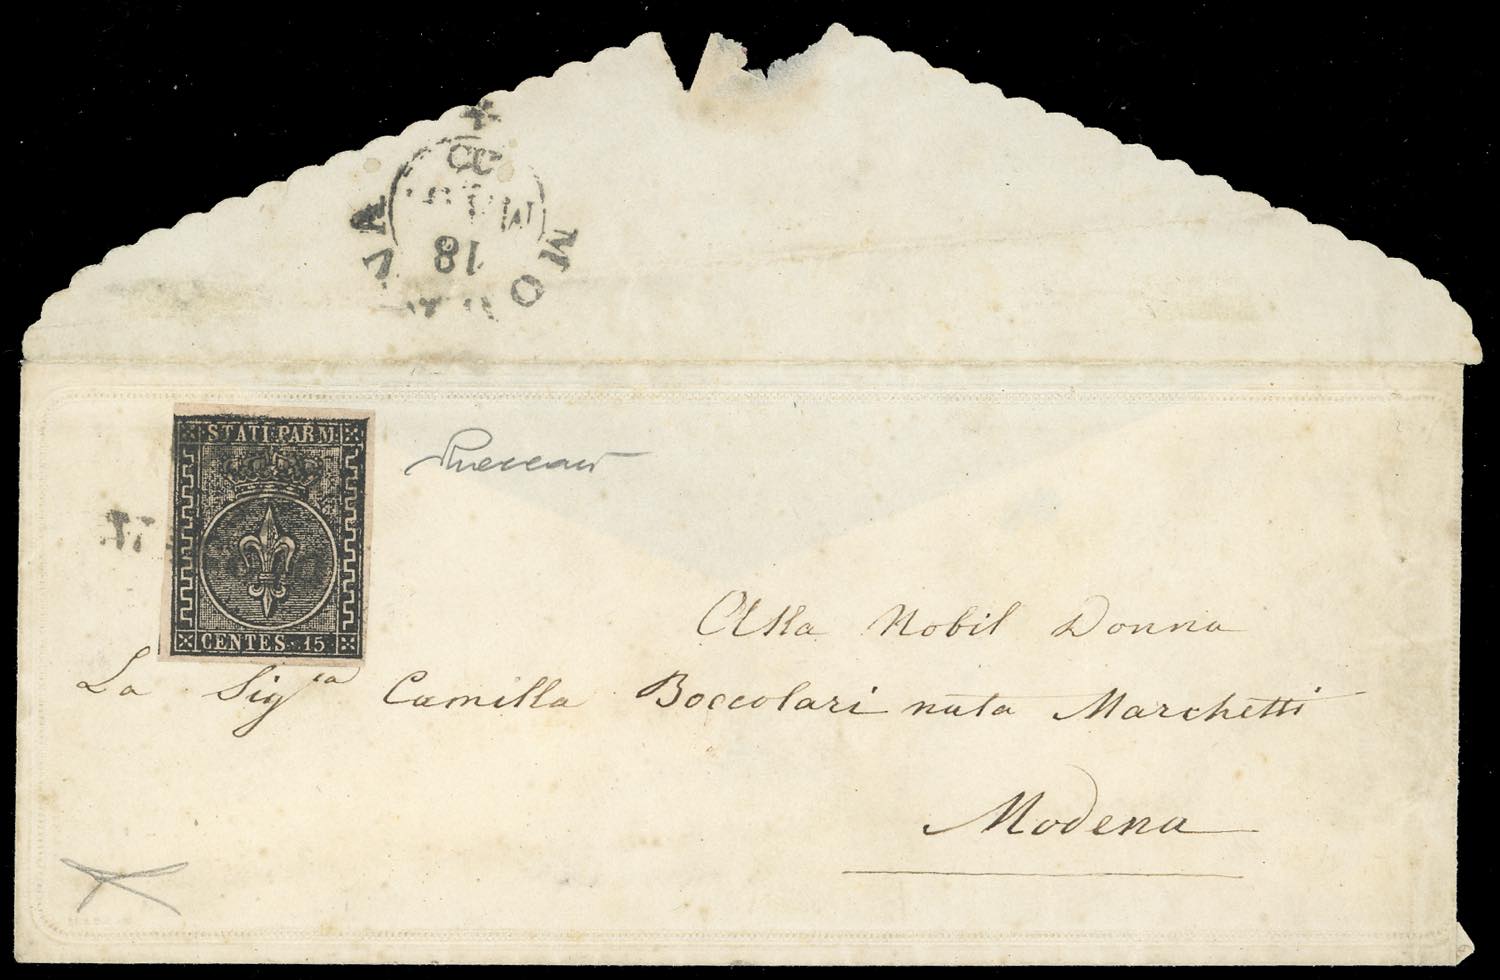 MO
VA
18
STATI PARM.
CENTES. 15
Alla Nobil Donna
La Sig.ra Camilla Boccolari nata Marchetti
Modena